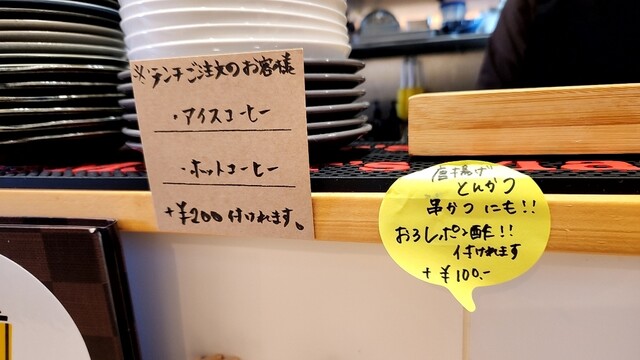 ※ランチご注文のお客様
・アイスコーヒー
・ホットコーヒー
+¥200付けれます。
唐揚げ
とんかつ
串かつにも!!
おろしポン酢!!
付けれます
+¥100.-